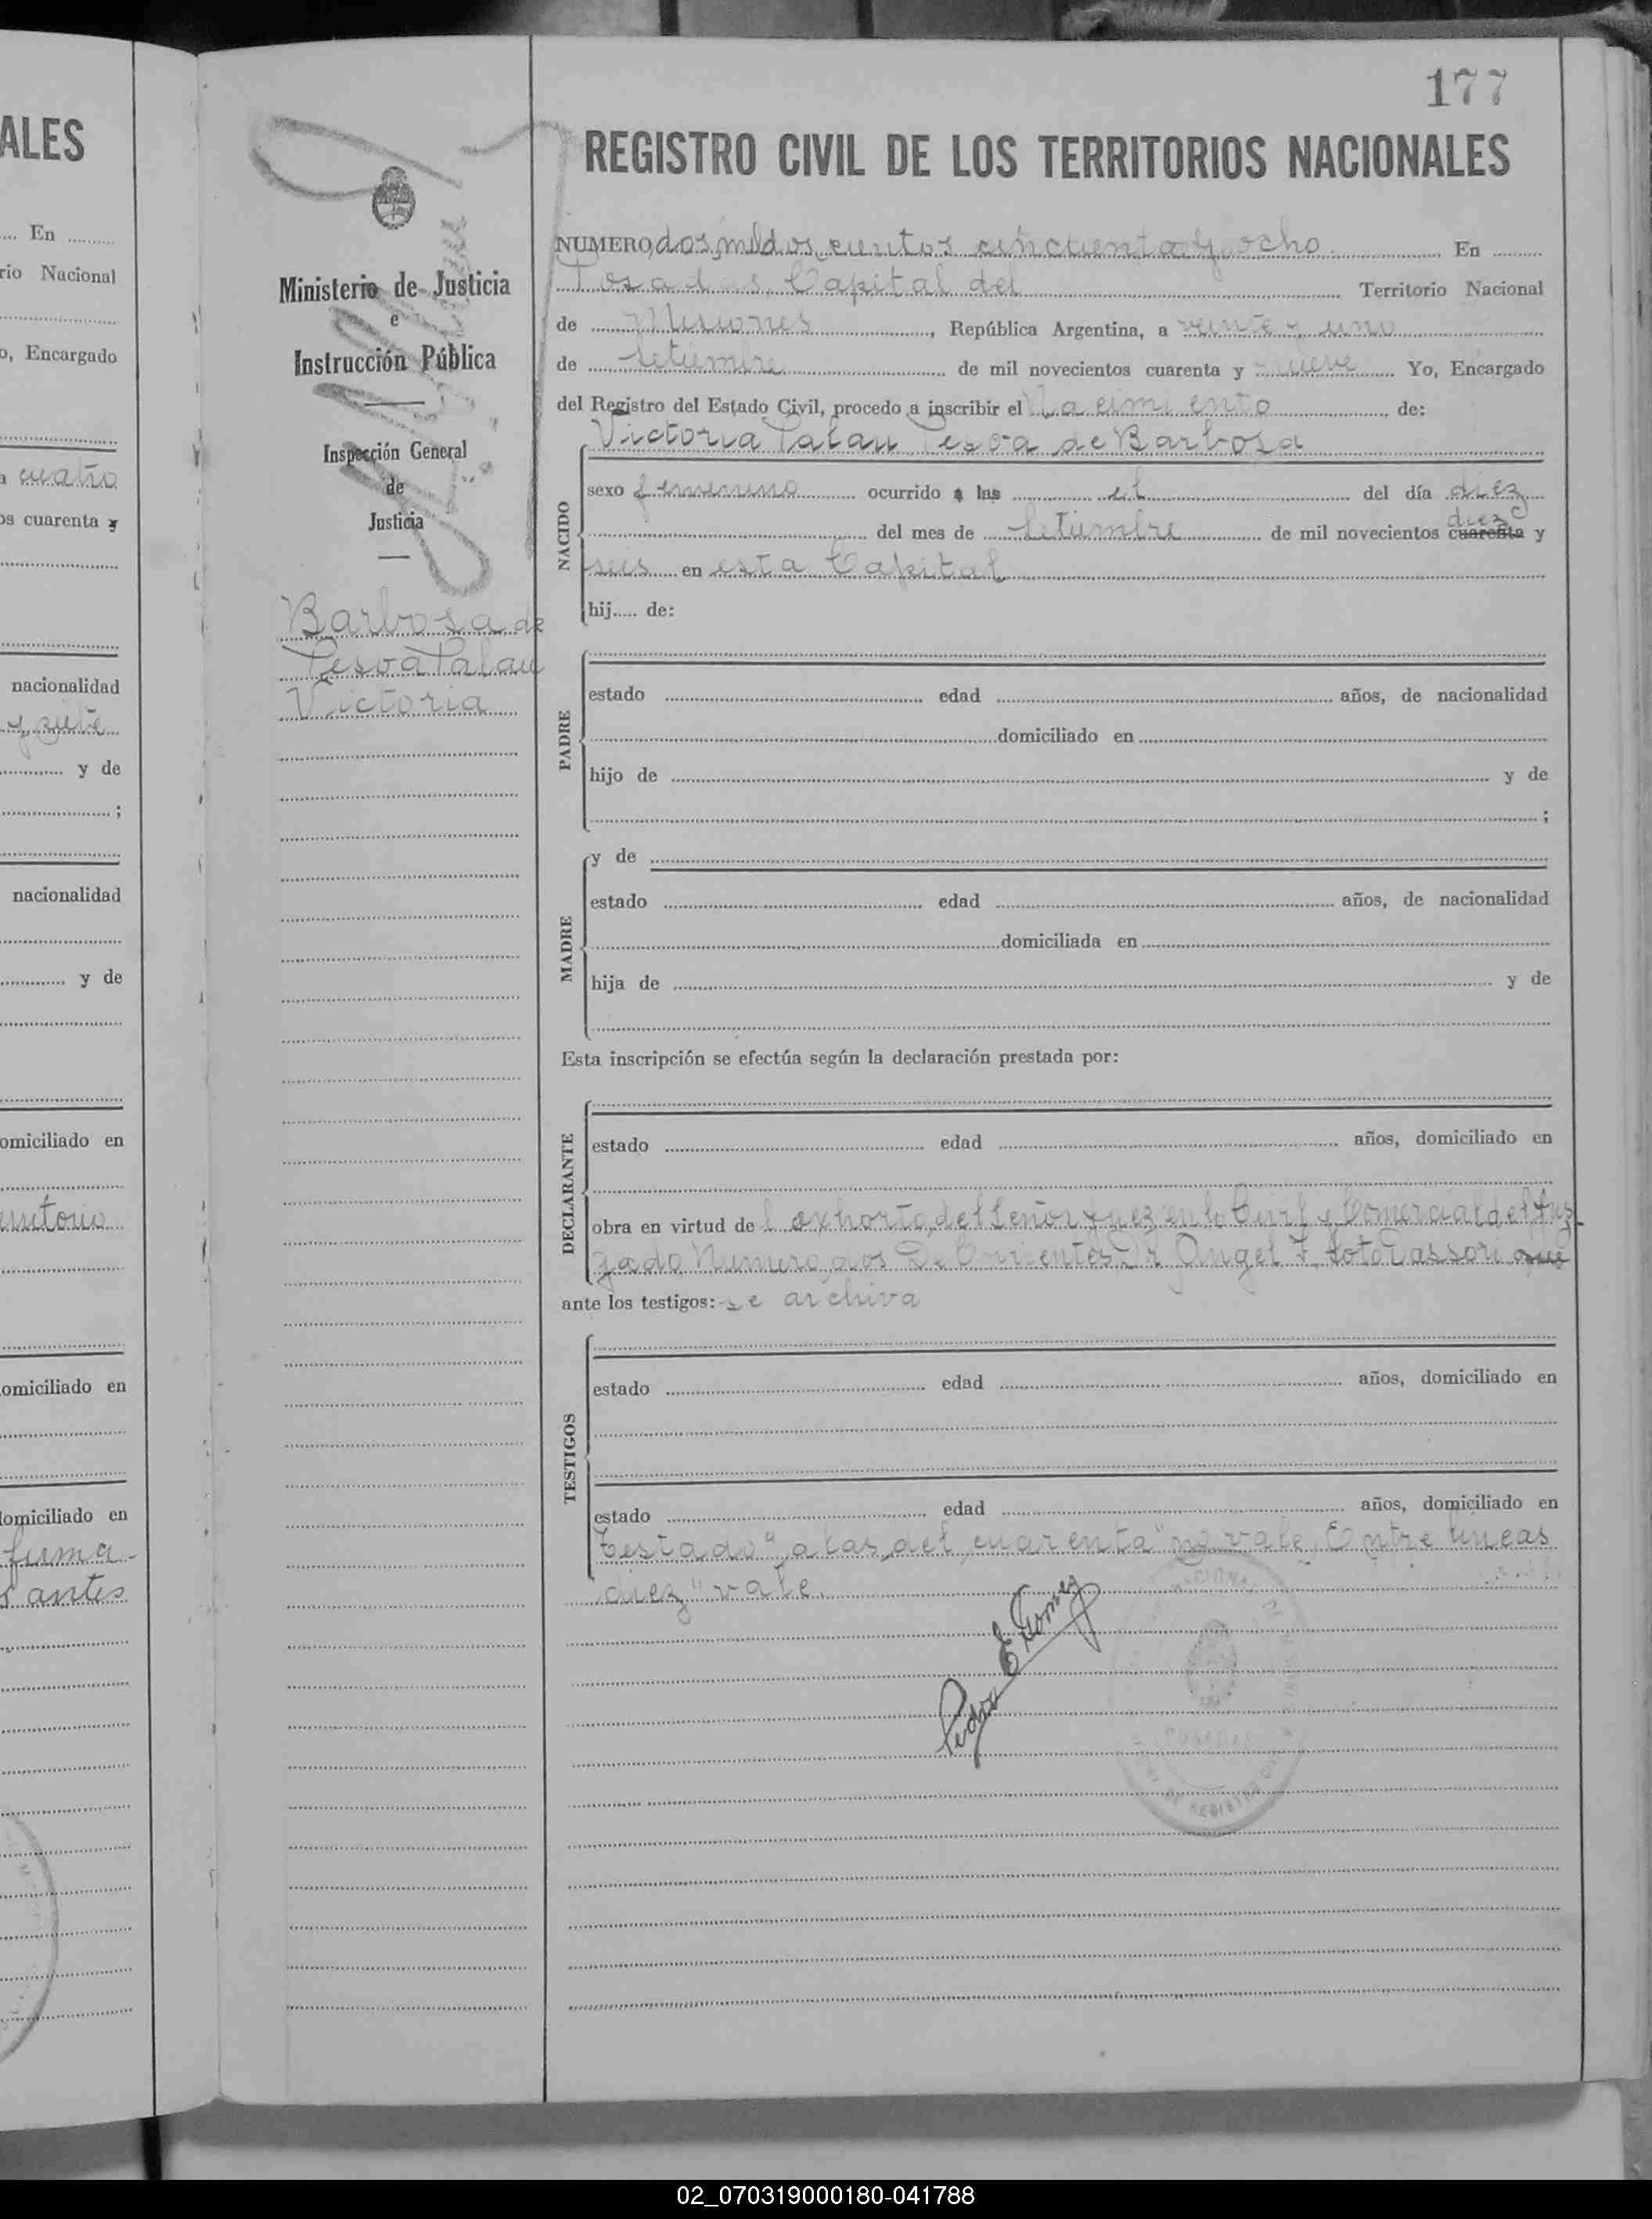 177
ALES
REGISTRO CIVIL DE LOS TERRITORIOS NACIONALES
En
rio Nacional
o, Encargado
cuatro
os cuarenta y
nacionalidad
y siete
y de
;
nacionalidad
y de
omiciliado en
erritorio
omiciliado en
domiciliado en
firma
s antes
Ministerio de Justicia
e
Instrucción Pública
Inspección General
de
Justicia
Barbosa de
Pesoa Palau
Victoria
NUMERO dos mil dos cientos cincuenta y ocho En
Posadas Capital del Territorio Nacional
de Misiones, República Argentina, a veinte y uno
de Setiembre de mil novecientos cuarenta y nueve Yo, Encargado
del Registro del Estado Civil, procedo a inscribir el Nacimiento de:
Victoria Palau Pesoa de Barbosa
NACIDO
sexo femenino ocurrido a las el del día diez
diez
del mes de Setiembre de mil novecientos cuarenta y
seis en esta Capital
hij..... de:
PADRE
estado edad años, de nacionalidad
domiciliado en
hijo de y de
;
MADRE
y de
estado edad años, de nacionalidad
domiciliada en
hija de y de
Esta inscripción se efectúa según la declaración prestada por:
DECLARANTE
estado edad años, domiciliado en
obra en virtud del exhorto del Señor Juez en lo Civil y Comercial del Juz
gado Numero dos De Corrientes Dr Angel F. Soto Dassori que
ante los testigos: se archiva
TESTIGOS
estado edad años, domiciliado en
estado edad años, domiciliado en
Testado "a las del cuarenta" no vale. Entre lineas
diez" vale.
Pedro E Gomez
POSADAS
02_070319000180-041788